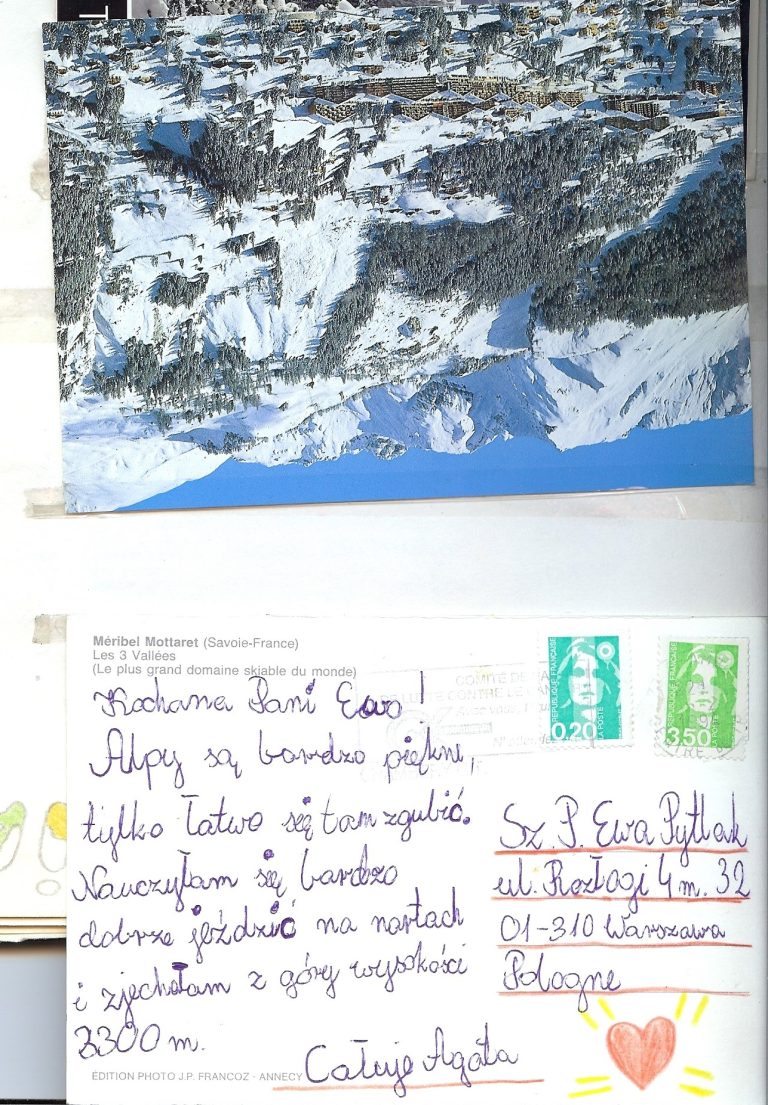 Méribel Mottaret (Savoie-France)
Les 3 Vallées
(Le plus grand domaine skiable du monde)
Kochana Pani Ewo!
Alpy są bardzo piękne,
tylko łatwo się tam zgubić.
Nauczyłam się bardzo
dobrze jeździć na nartach
i zjechałam z góry wysokości
3300 m.
Całuję Agata
ÉDITION PHOTO J.P. FRANCOZ - ANNECY
COMITE DE
LUTTE CONTRE LE
REPUBLIQUE FRANÇAISE
LA POSTE
0,20
REPUBLIQUE FRANÇAISE
LA POSTE
3,50
Sz. P. Ewa Pytlak
ul. Rozłogi 4 m. 32
01-310 Warszawa
Pologne